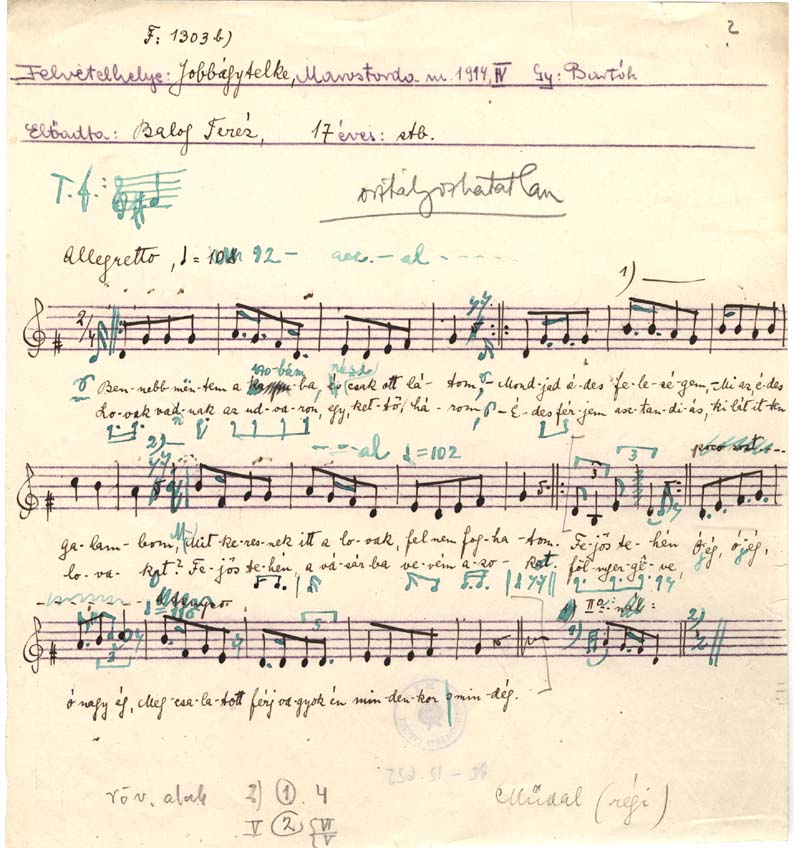 F: 1303 b) 2
Felvételhelye: Jobbágytelke, Marostorda m. 1914, IV Gy: Bartók
Előadta: Balog Teréz, 17 éves: stb.
T. f.:
osztályozhatatlan
Allegretto, ♩ = 92 - acc. - al - - - - -
1)
2/4
szo-bám
Ben-nebb mën-tem a -ba, és csak ott lá-tom, - Mond-jad é-des fe-le-sé-gem, -Mi az, é-des
Lo-vak vad-nak az ud-va-ron, egy, ket-tő, há-rom, - É-des fér-jem asz-tan-di-ás, ki lát it-ten
2) - - - al ♩ = 102
3 3
ga-lam-bom, Mit ke-res-nek itt a lo-vak, fel nem fog-ha-tom. Fe-jős te-hén Ó jég, ó jég,
lo-va-kat? Fe-jős te-hén, a vá-sár-ba ve-vém a-zo-kat. föl-nyer-gel-ve,
3 5 IIª-nál: 2)
ó nagy ég, Meg-csa-la-tott férj va-gyok én min-den-kor min-dég.
röv. alak 2) 1. 4
V 2 VI
V
Műdal (régi)